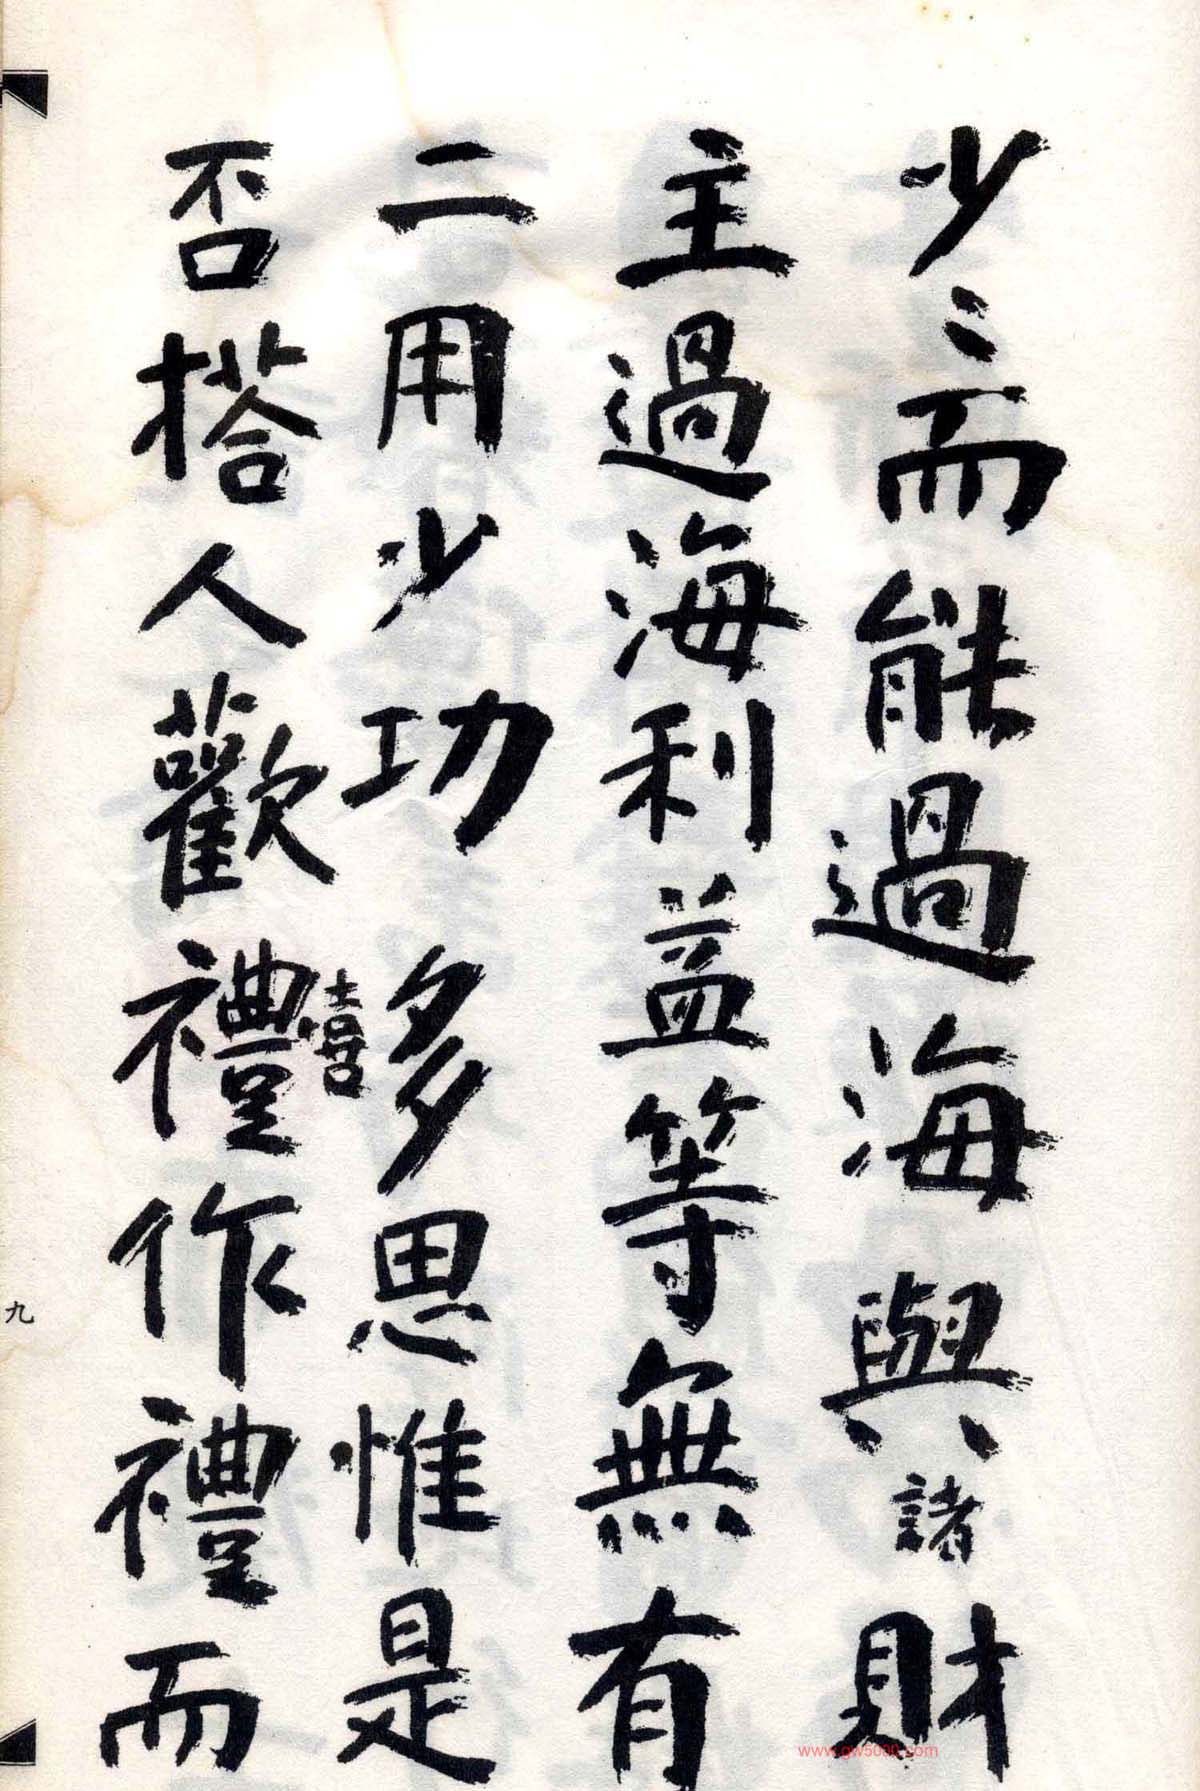 少〻而能過海與諸財
主過海利益等無有
二用少功多思惟是
否搭人歡嘻禮作禮而
九
www.gw5000.com